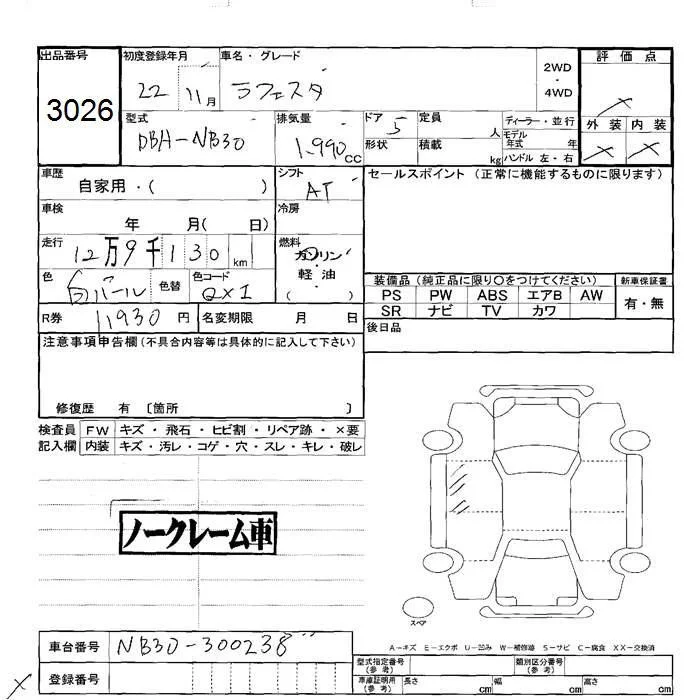 出品番号 初度登録年月 車名・グレード 2WD・4WD 評価点
3026 22 11月 ラフェスタ ×
型式 排気量 ドア 定員 人 ディーラー・並行 外装 内装
DBA-NB30 1,990cc 5 形状 積載 kg モデル年式 年 ハンドル 左・右 × ×
車歴 自家用・( ) シフト AT セールスポイント (正常に機能するものに限ります)
車検 年 月( 日) 冷房
走行 12万9千130km 燃料 ガソリン・軽油 ( )
色 白パール 色替 色コード QX1
装備品 (純正品に限り〇をつけてください) 新車保証書
PS PW ABS エアB AW 有・無
SR ナビ TV カワ
R券 11930円 名変期限 月 日 後日品
注意事項申告欄(不具合内容等は具体的に記入して下さい)
修復歴 有 〔箇所 〕
検査員 FW キズ・飛石・ヒビ割・リペア跡・×要
記入欄 内装 キズ・汚レ・コゲ・穴・スレ・キレ・破レ
ノークレーム車
スペア
A-キズ E-エクボ U-凹み W-補修跡 S-サビ C-腐食 XX-交換済
車台番号 NB30-300238
登録番号
型式指定番号(参考) 類別区分番号(参考)
車庫証明用(参考) 長さ cm 幅 cm 高さ cm
×